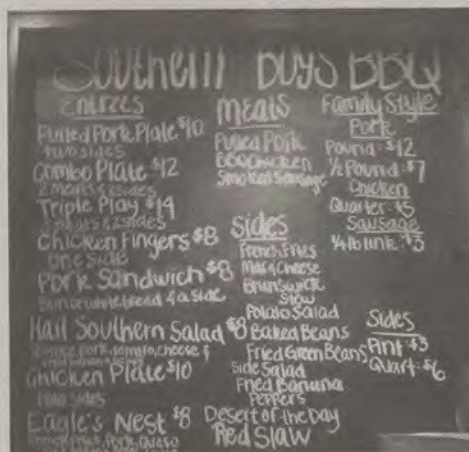 Southern Boys BBQ
Entrees
Pulled Pork Plate $10
two sides
Combo Plate $12
2 meats & 2 sides
Triple Play $14
3 meats & 2 sides
Chicken Fingers $8
one side
Pork Sandwich $8
Bun or white bread & a side
Hail Southern Salad $8
pork, tomato, cheese &
Chicken Plate $10
two sides
Eagle's Nest $8
French Fries, Pork, Queso
Meats
Pulled Pork
BBQ Chicken
Smoked Sausage
Sides
French Fries
Mac n Cheese
Brunswick
Stew
Potato Salad
Baked Beans
Fried Green Beans
Side Salad
Fried Banana
Peppers
Desert of the Day
Red Slaw
Family Style
Pork
Pound: $12
1/2 Pound: $7
Chicken
Quarter: $5
Sausage
1/4 lb link: $3
Sides
Pint: $3
Quart: $6